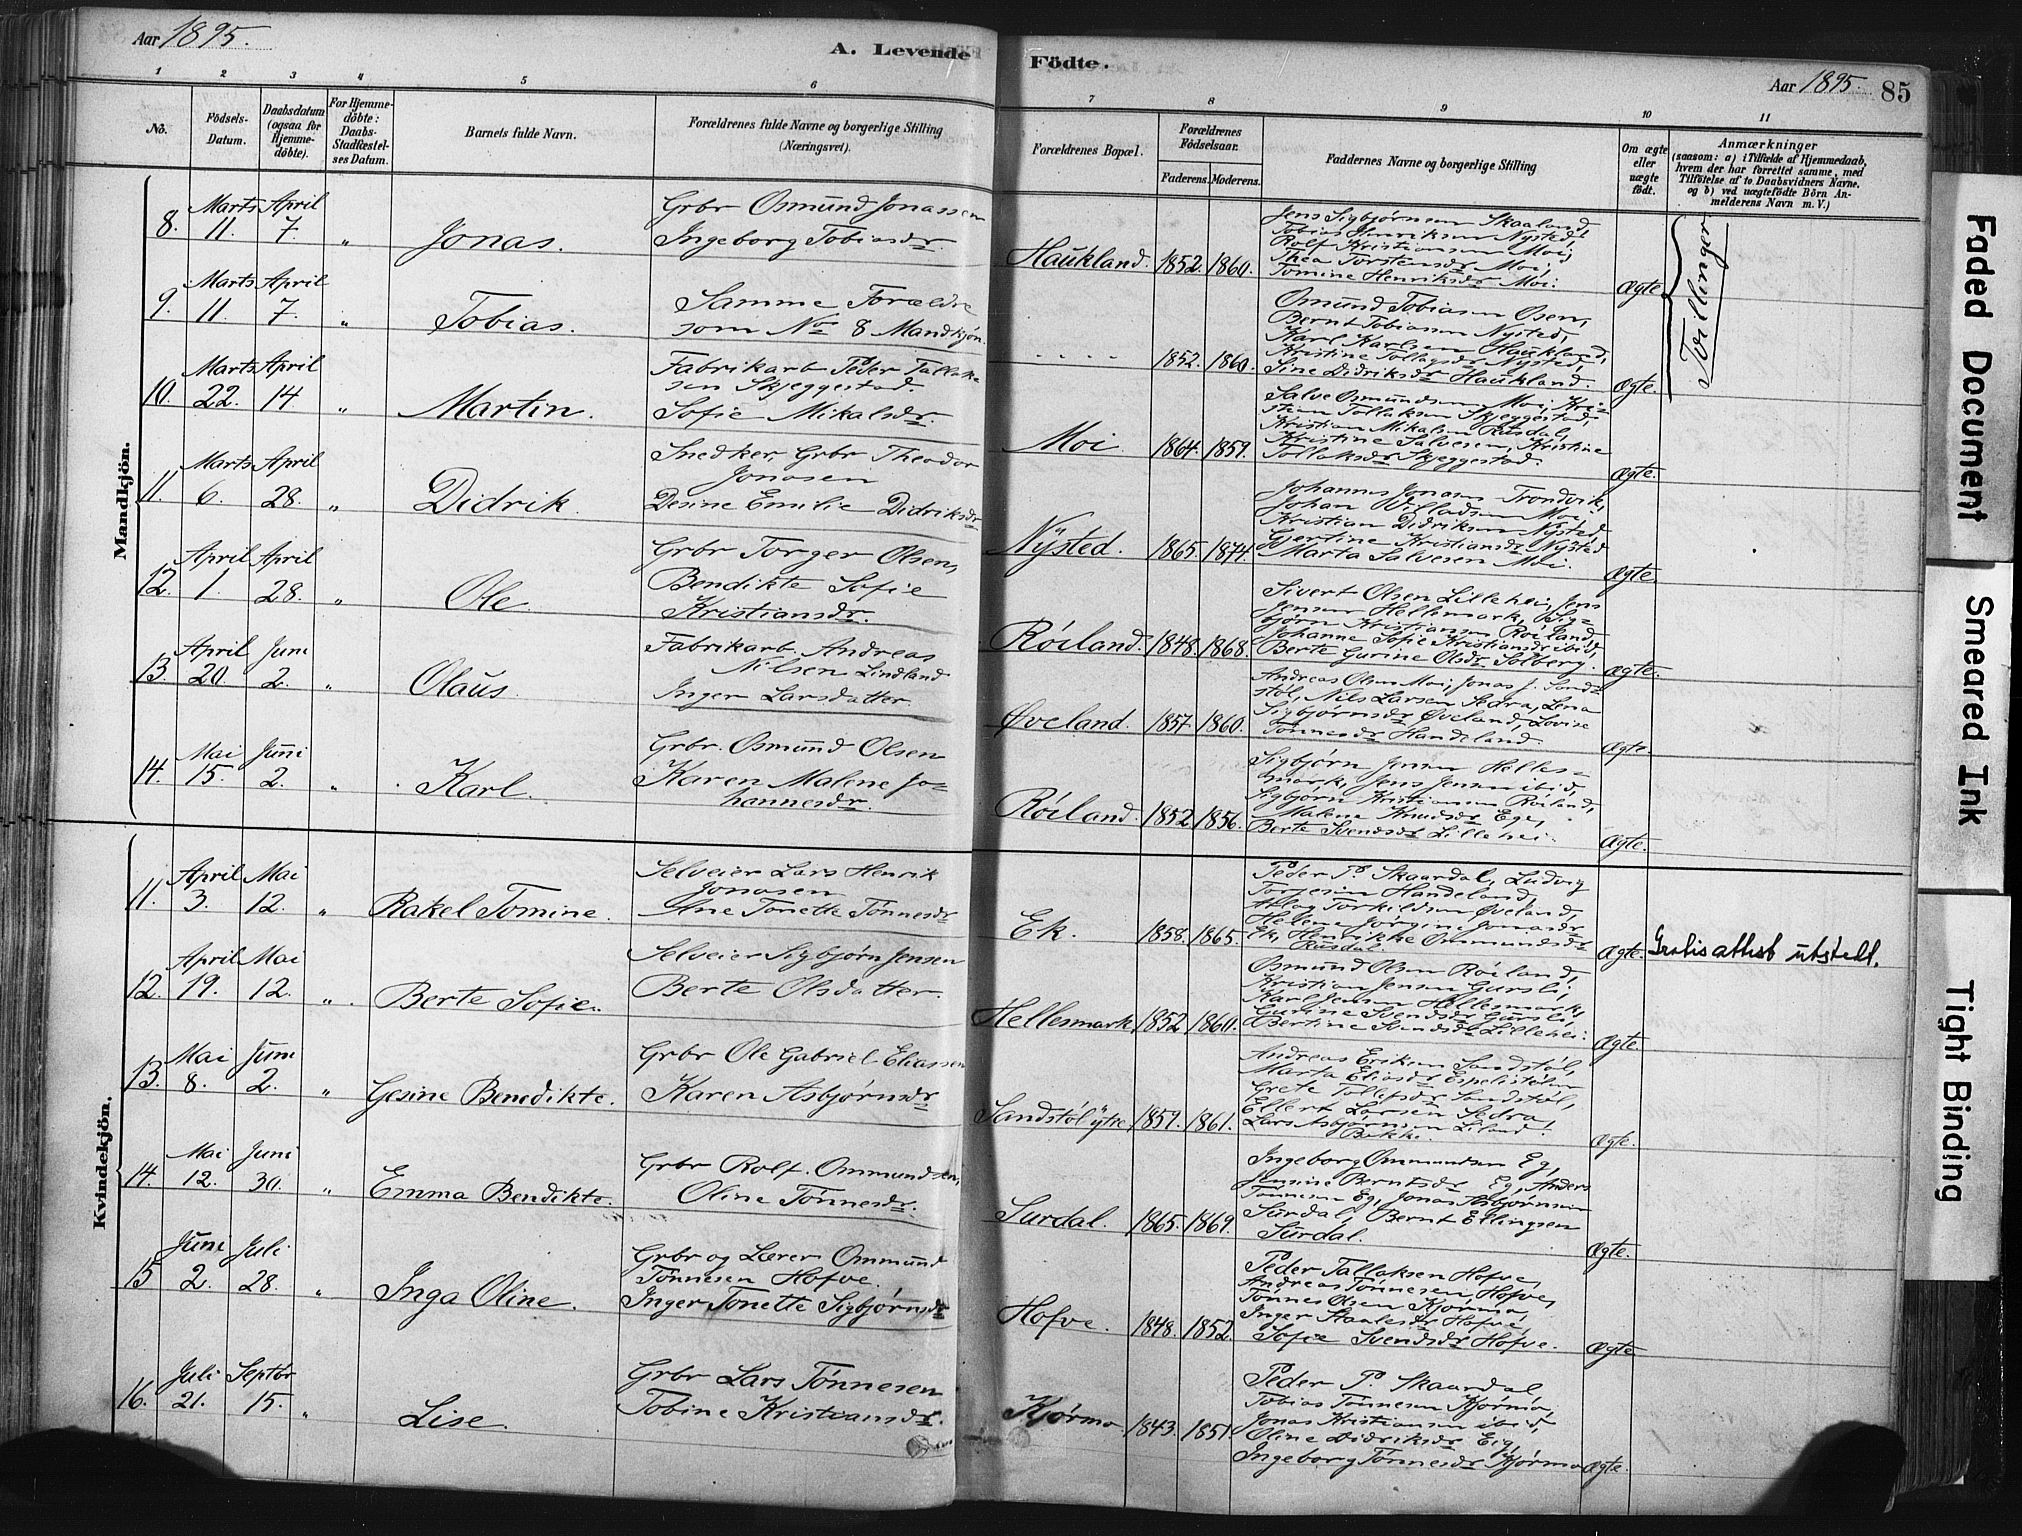 Aar 1895.
A. Levende Födte.
Aar 1895. 85
1 2 3 4 5 6 7 8 9 10 11
No.
Födsels-Datum.
Daabsdatum (ogsaa for Hjemme-döbte).
For Hjemme-döbte: Daabs-Stadfæstel-ses Datum.
Barnets fulde Navn.
Forældrenes fulde Navne og borgerlige Stilling (Næringsvei).
Forældrenes Bopæl.
Forældrenes Födselsaar.
Faderens. Moderens.
Faddernes Navne og borgerlige Stilling
Om ægte eller uægte födt.
Anmærkninger
(saasom: a) i Tilfælde af Hjemmedaab,
hvem der har forrettet samme, med
Tilföielse af to Daabsvidners Navne.
og b) ved uægtefödte Börn An-
melderens Navn m. V.)
Mandkjön.
8. Marts 11. April 7. " Jonas.
Grbr Osmund Jonassen
Ingeborg Tobiasdr.
Haukland. 1852. 1860.
Jens Sigbjørnsen Skaaland,
Tobias Henriksen Nysted,
Rolf Kristiansen Moi,
Thea Torstensdr Moi,
Tomine Henriksdr Moi.
Ægte
Tvillinger
9. Marts 11. April 7. " Tobias.
Samme Forældre
som No 8 Mandkjøn.
. . . . . 1852. 1860.
Osmund Tobiasen Osen,
Bernt Tobiasen Nysted,
Karl Karlsen Haukland,
Kristine Tollagsdr Nysted,
Sine Didriksdr Haukland.
Ægte.
10. Marts 22. April 14. " Martin.
Fabrikarb Peder Tallak-
sen Skjeggestad.
Sofie Mikalsdr.
Moi. 1864. 1859.
Salve Osmundsen Moi, Kri-
stian Tollaksen Skjeggestad,
Kristian Mikalsen Rusdal,
Kristine Salvesen, Kristine
Tollaksdr Skjeggestad.
Ægte.
11. Marts 6. April 28. " Didrik.
Snedker, Grbr Theodor
Jonasen
Desine Emilie Didriksdr
Nysted. 1865. 1874.
Johannes Jonasen Trondvik,
Johan Villadsen Moi,
Kristian Didriksen Nysted,
Gjertine Kristiansdr Nysted
Marta Salvesen Moi.
Ægte.
12. April 1. April 28. " Ole.
Grbr Torger Olsen,
Bendikte Sofie
Kristiansdr.
Röiland. 1848. 1868.
Sivert Olsen Lillehei, Jens
Jensen Hellesmark, Sig-
bjørn Kristiansen Röiland,
Johanne Sofie Kristiansdr ibid,
Berte Gurine Olsdr Solberg.
Ægte.
13. April 20. Juni 2. " Olaus.
Fabrikarb. Andreas
Nilsen Lindland
Inger Larsdatter
Øveland. 1857. 1860.
Andreas Olsen Moi, Jonas J. Sand-
støl, Nils Larsen Sedra, Lina
Sigbjørnsdr Øveland, Lovise
Tønnesdr Handeland.
Ægte.
14. Mai 15. Juni 2. " Karl.
Grbr. Osmund Olsen
Karen Malene Jo-
hannesdr.
Röiland. 1852 1856.
Sigbjørn Jensen Helles-
mark, Jens Jensen ibid,
Sigbjørn Kristiansen Röiland,
Malene Knudsdr Ege,
Berte Svendsdr Lillehei.
Ægte.
Kvindekjön.
11. April 3. Mai 12. " Rakel Tomine.
Selveier Lars Henrik
Jonasen
Ane Tonette Tønnesdr
Ek. 1858. 1865.
Peder P. Skaardal, Ludvig
Torjesen Handeland,
Atlag Torkildsen Øveland,
Helene Jörgine Jonasdr
Ek, Henrikke Ommundsdr
Rusdal.
Ægte. Gratis attest utstedt.
12. April 19. Mai 12. " Berte Sofie.
Selveier Sigbjørn Jensen
Berte Olsdatter.
Hellesmark, 1852 1860.
Osmund Olsen Röiland,
Kristian Jensen Gursli,
Karl Jensen Hellesmark,
Gurine Svendsdr Gursli,
Bertine Svendsdr Lillehei.
Ægte.
13. Mai 8. Juni 2. " Gesine Benedikte.
Grbr Ole Gabriel Eliassen
Karen Asbjørnsdr
Sandstøl ytre, 1859. 1861.
Andreas Eriksen Sandstøl,
Marta Eliasdr Espelistølen
Grete Tollefsdr Sandstøl,
Ellert Larsen Sedra,
Lars Asbjørnsen Liland,
Bakke.
Ægte.
14. Mai 12. Juni 30. " Emma Bendikte.
Grbr Rolf Ommundsen,
Oline Tønnesdr.
Surdal. 1865. 1869.
Ingeborg Ommundsen Eg,
Jensine Berntsdr Eg, Anders
Tønnesen Eg, Jonas Asbjørnsen
Surdal, Bernt Ellingsen
Surdal.
Ægte.
15 Juni 2. Juli 28. " Inga Oline.
Grbr og Lærer Ommund
Tönnesen Hofve.
Inger Tonette Sigbjørnsdr
Hofve. 1848. 1852.
Peder Tallaksen Hofve,
Andreas Tønnesen, Hofve,
Tønnes Olsen Kjørmo,
Inger Staalesdr Hofve,
Sofie Svendsdr Hofve.
Ægte
16. Juli 21. Septbr 15. " Lise.
Grbr Lars Tønnesen
Tobine Kristiansdr.
Kjörmo. 1843. 1851.
Peder P. Skaardal
Tobias Tønnesen Kjørmo,
Jonas Kristiansen ibid,
Oline Didriksdr Eig,
Ingeborg Tønnesdr Kjørmo
Ægte.
Faded Document
Smeared Ink
Tight Binding